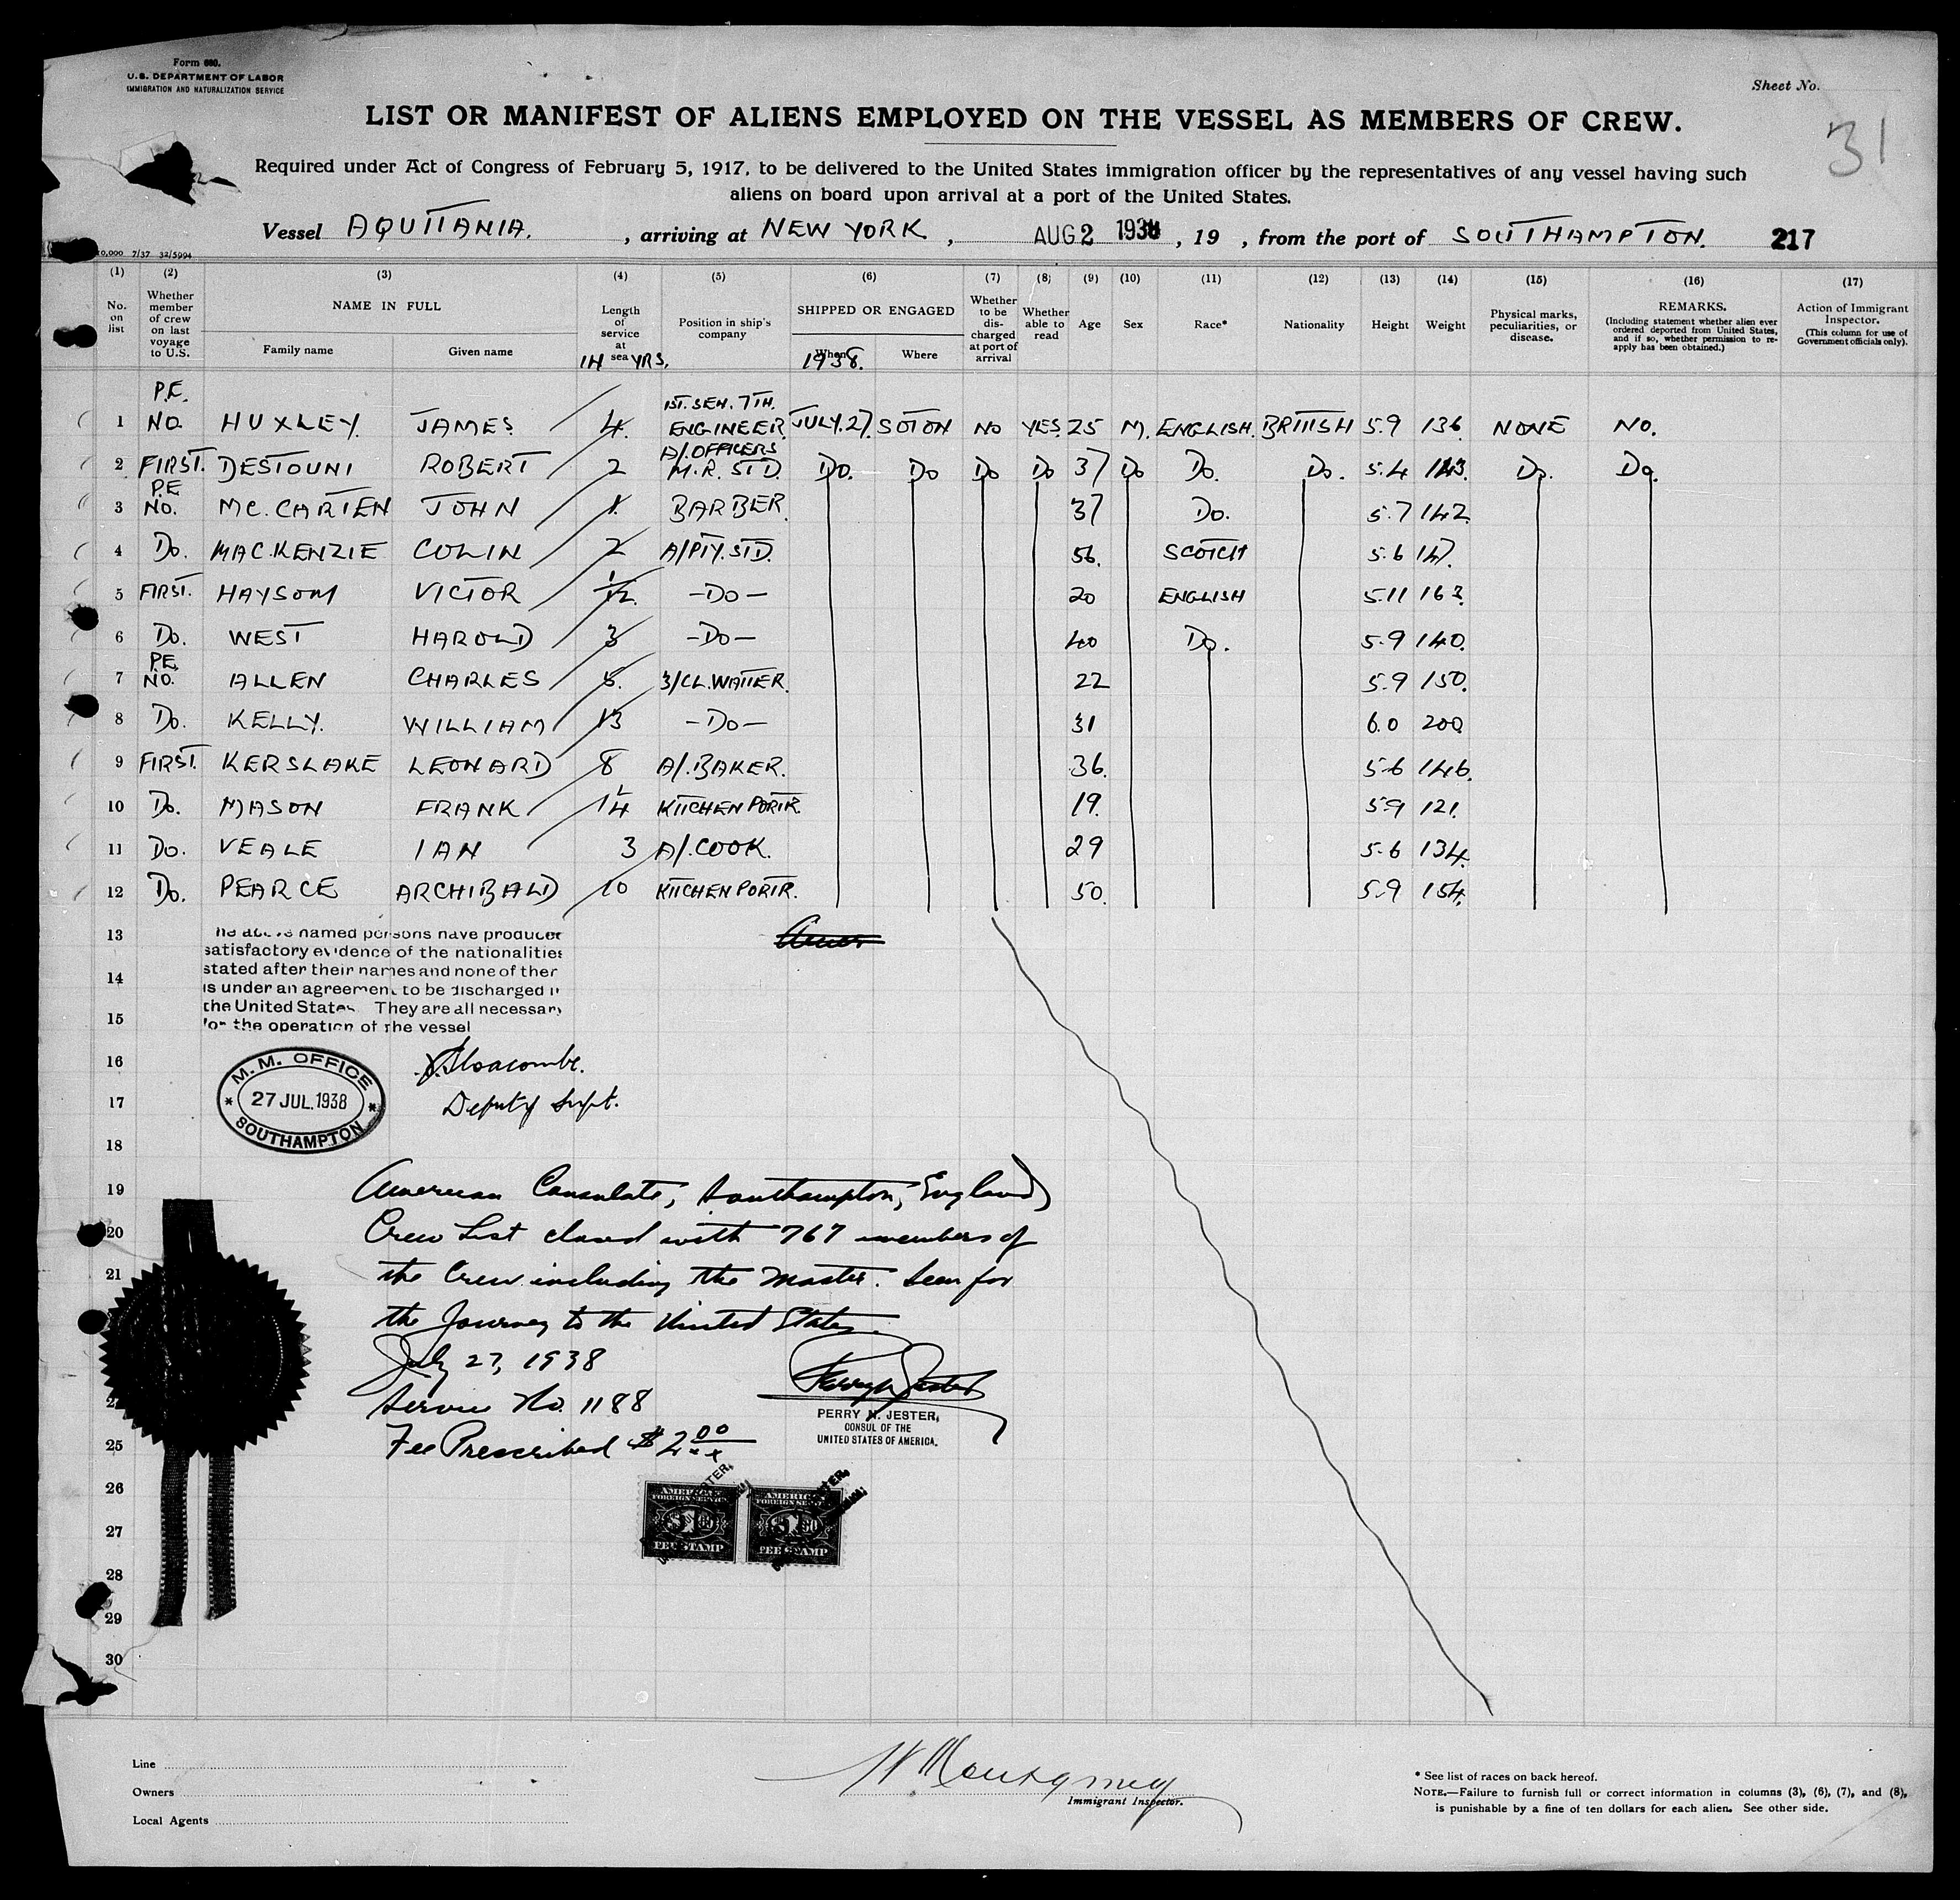 Form 680.
U.S. DEPARTMENT OF LABOR
IMMIGRATION AND NATURALIZATION SERVICE
Sheet No.
LIST OR MANIFEST OF ALIENS EMPLOYED ON THE VESSEL AS MEMBERS OF CREW.
31
Required under Act of Congress of February 5, 1917, to be delivered to the United States immigration officer by the representatives of any vessel having such
aliens on board upon arrival at a port of the United States.
Vessel AQUITANIA. , arriving at NEW YORK , AUG 2 1938 , 19 , from the port of SOUTHAMPTON. 217
0,000 7/37 32/5994
(1) (2) (3) (4) (5) (6) (7) (8) (9) (10) (11) (12) (13) (14) (15) (16) (17)
No. on list Whether member of crew on last voyage to U.S. NAME IN FULL Family name Given name Length of service at sea Position in ship's company SHIPPED OR ENGAGED When Where Whether to be discharged at port of arrival Whether able to read Age Sex Race* Nationality Height Weight Physical marks, peculiarities, or disease. REMARKS. (Including statement whether alien ever ordered deported from United States, and if so, whether permission to re-apply has been obtained.) Action of Immigrant Inspector. (This column for use of Government officials only).
YRS. 1938.
1 P.E. NO. HUXLEY. JAMES. 4. 1ST. SEN. 7TH. ENGINEER. JULY.27. SOTON NO YES. 25 M. ENGLISH. BRITISH 5.9 136 NONE NO.
2 FIRST. DESTOUNI ROBERT 2 A/OFFICERS M.R. STD. Do. Do Do Do 37 Do Do. Do. 5.4 143. Do. Do.
3 P.E NO. MC.CARTEN JOHN 1. BARBER. 37 Do. 5.7 142.
4 Do. MAC.KENZIE COLIN 2 A/PTY.STD. 56. SCOTCH 5.6 147.
5 FIRST. HAYSOM VICTOR 1/12. -Do- 20 ENGLISH 5.11 163.
6 Do. WEST HAROLD 3 -Do- 40 Do. 5.9 140.
7 P.E. NO. ALLEN CHARLES 3/CL.WAITER. 22 5.9 150.
8 Do. KELLY. WILLIAM 13 -Do- 31 6.0 200.
9 FIRST. KERSLAKE LEONARD 8 A/.BAKER. 36. 5.6 146.
10 Do. MASON FRANK KITCHEN PORTR. 19. 5.9 121.
11 Do. VEALE IAN 3 A/.COOK. 29 5.6 134.
12 Do. PEARCE ARCHIBALD 10 KITCHEN PORTR. 50. 5.9 154.
13
14
15
16
17
18
19
20
21
25
26
27
28
29
30
he above named persons have produced
satisfactory evidence of the nationalities
stated after their names and none of ther
is under an agreement to be discharged i
the United States They are all necessary
for the operation of the vessel
M.M. OFFICE
27 JUL.1938
SOUTHAMPTON
Deputy Supt.
American Consulate, Southampton, England
Crew List closed with 767 members of
the Crew including the Master. Seen for
the Journey to the United States.
July 27, 1938
Service No. 1188
Fee Prescribed $2.00
Perry N. Jester
PERRY N. JESTER,
CONSUL OF THE
UNITED STATES OF AMERICA.
AMERICAN FOREIGN SERVICE $1 FEE STAMP
AMERICAN FOREIGN SERVICE $1 FEE STAMP
Line
Owners
Local Agents
Immigrant Inspector.
* See list of races on back hereof.
NOTE.—Failure to furnish full or correct information in columns (3), (6), (7), and (8),
is punishable by a fine of ten dollars for each alien. See other side.